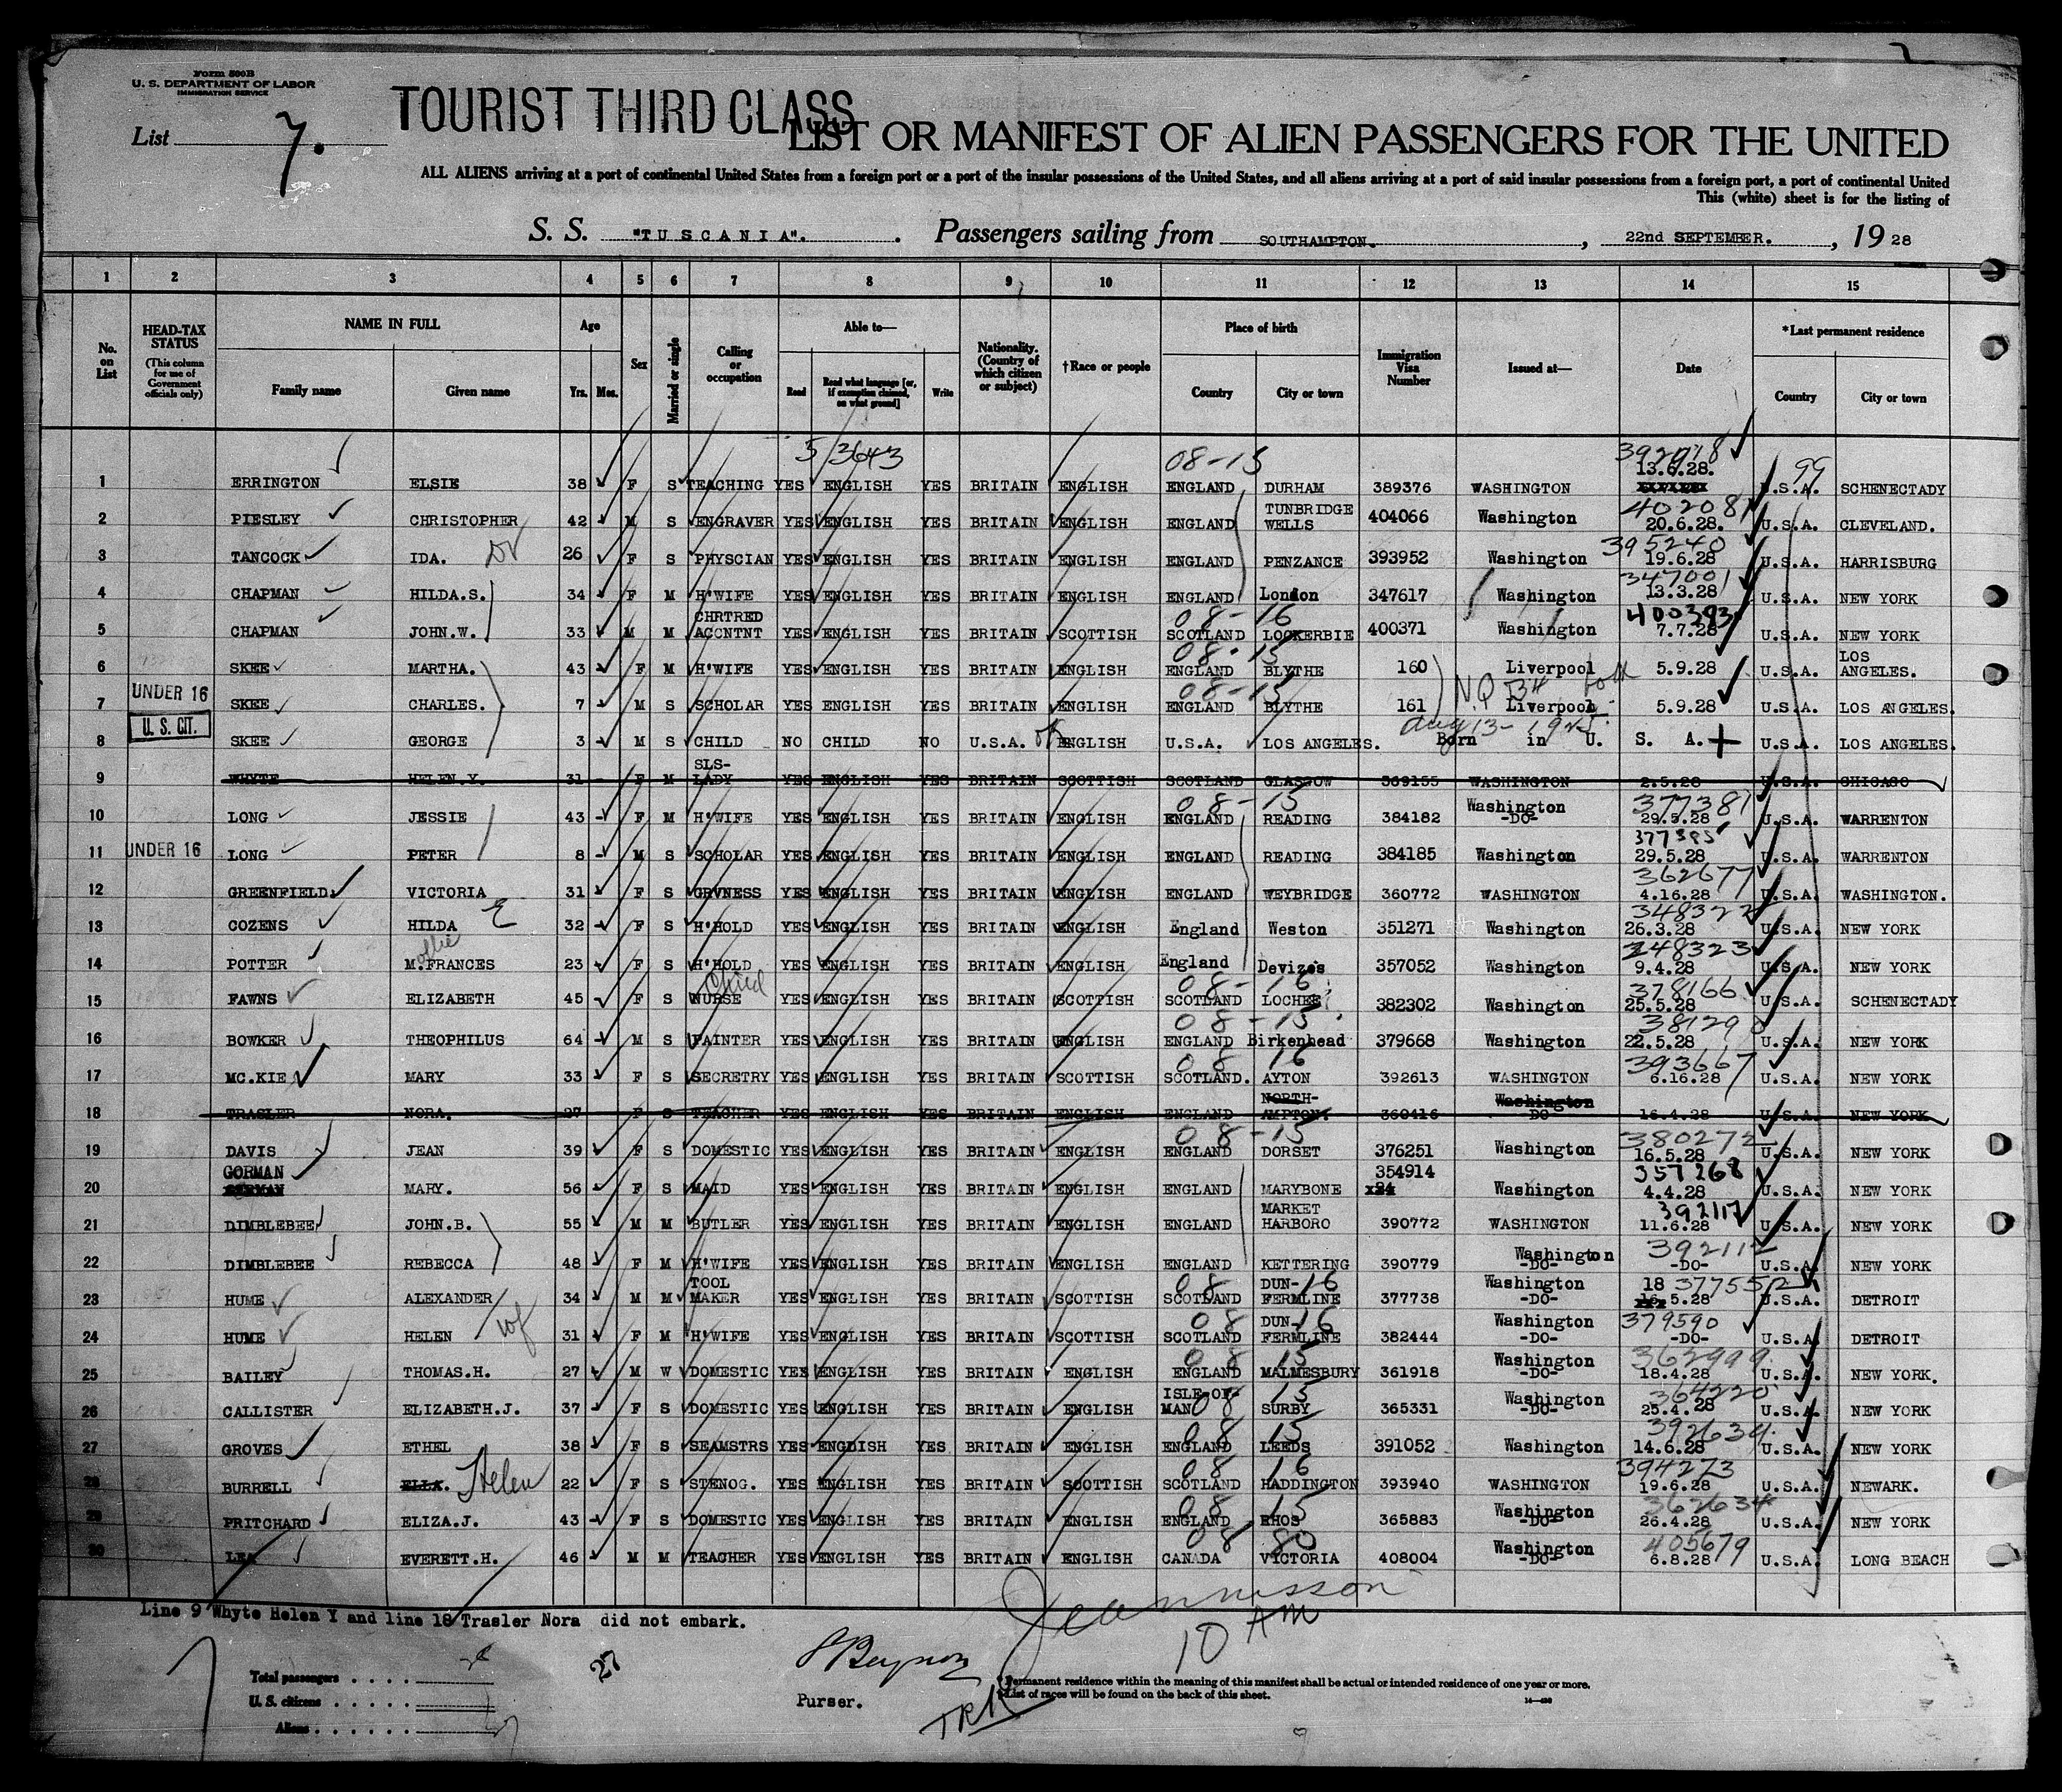 Form 500B
U. S. DEPARTMENT OF LABOR
IMMIGRATION SERVICE
List 7.
TOURIST THIRD CLASS
LIST OR MANIFEST OF ALIEN PASSENGERS FOR THE UNITED
ALL ALIENS arriving at a port of continental United States from a foreign port or a port of the insular possessions of the United States, and all aliens arriving at a port of said insular possessions from a foreign port, a port of continental United
This (white) sheet is for the listing of
S. S. "TUSCANIA". Passengers sailing from SOUTHAMPTON. , 22nd SEPTEMBER. , 19 28
1 2 3 4 5 6 7 8 9 10 11 12 13 14 15
No. on List
HEAD-TAX STATUS (This column for use of Government officials only)
NAME IN FULL
Family name Given name
Age
Yrs. Mos.
Sex
Married or single
Calling or occupation
Able to—
Read Read what language [or, if exemption claimed, on what ground] Write
Nationality. (Country of which citizen or subject)
†Race or people
Place of birth
Country City or town
Immigration Visa Number
Issued at—
Date
*Last permanent residence
Country City or town
5/3643 08-15 392018
1 ERRINGTON ELSIE 38 F S TEACHING YES ENGLISH YES BRITAIN ENGLISH ENGLAND DURHAM 389376 WASHINGTON 13.6.28. U.S.A. 99 SCHENECTADY
2 PIESLEY CHRISTOPHER 42 M S ENGRAVER YES ENGLISH YES BRITAIN ENGLISH ENGLAND TUNBRIDGE WELLS 404066 Washington 40208 20.6.28. U.S.A. CLEVELAND.
3 TANCOCK IDA. Dr 26 F S PHYSCIAN YES ENGLISH YES BRITAIN ENGLISH ENGLAND PENZANCE 393952 Washington 395240 19.6.28 U.S.A. HARRISBURG
4 CHAPMAN HILDA.S. 34 F M H'WIFE YES ENGLISH YES BRITAIN ENGLISH ENGLAND London 347617 Washington 347001 13.3.28 U.S.A. NEW YORK
5 CHAPMAN JOHN.W. 33 M M CHRTRED ACCNTNT YES ENGLISH YES BRITAIN SCOTTISH 08-16 SCOTLAND LOCKERBIE 400371 Washington 400393 7.7.28 U.S.A. NEW YORK
6 SKEE MARTHA. 43 F M H'WIFE YES ENGLISH YES BRITAIN ENGLISH 08-15 ENGLAND BLYTHE 160 Liverpool 5.9.28 U.S.A. LOS ANGELES.
UNDER 16
7 SKEE CHARLES. 7 M S SCHOLAR YES ENGLISH YES BRITAIN ENGLISH 08-15 ENGLAND BLYTHE 161 N.Q Liverpool 5.9.28 U.S.A. LOS ANGELES.
U. S. CIT.
8 SKEE GEORGE 3 M S CHILD NO CHILD NO U.S.A. ENGLISH U.S.A. LOS ANGELES. Aug 13- 1925. Born in U. S. A. U.S.A. LOS ANGELES.
9 WHYTE HELEN.Y. 31 F M SLS-LADY YES ENGLISH YES BRITAIN SCOTTISH SCOTLAND GLASGOW 369155 WASHINGTON 2.5.28 U.S.A. CHICAGO
10 LONG JESSIE 43 F M H'WIFE YES ENGLISH YES BRITAIN ENGLISH 08-15 ENGLAND READING 384182 Washington -DO- 377381 29.5.28 U.S.A. WARRENTON
11 UNDER 16 LONG PETER 8 M S SCHOLAR YES ENGLISH YES BRITAIN ENGLISH ENGLAND READING 384185 Washington 377385 29.5.28 U.S.A. WARRENTON
12 GREENFIELD. VICTORIA 31 F S GRVNESS YES ENGLISH YES BRITAIN ENGLISH ENGLAND WEYBRIDGE 360772 WASHINGTON 362677 4.16.28 U.S.A. WASHINGTON.
13 COZENS HILDA E 32 F S H'HOLD YES ENGLISH YES BRITAIN ENGLISH England Weston 351271 Washington 348322 26.3.28 U.S.A. NEW YORK
14 POTTER M.ollie FRANCES 23 F S H'HOLD YES ENGLISH YES BRITAIN ENGLISH England Devizes 357052 Washington 348323 9.4.28 U.S.A. NEW YORK
15 FAWNS ELIZABETH 45 F S Child NURSE YES ENGLISH YES BRITAIN SCOTTISH 08-16 SCOTLAND LOCHEE 382302 Washington 378166 25.5.28 U.S.A. SCHENECTADY
16 BOWKER THEOPHILUS 64 M S PAINTER YES ENGLISH YES BRITAIN ENGLISH 08-15 ENGLAND Birkenhead 379668 Washington 381290 22.5.28 U.S.A. NEW YORK
17 MC.KIE MARY 33 F S SECRETRY YES ENGLISH YES BRITAIN SCOTTISH 08 16 SCOTLAND. AYTON 392613 WASHINGTON 393667 6.16.28 U.S.A. NEW YORK
18 TRASLER NORA. 27 F S TEACHER YES ENGLISH YES BRITAIN ENGLISH ENGLAND NORTH-AMPTON. 360416 Washington DO 16.4.28 U.S.A. NEW YORK
19 DAVIS JEAN 39 F S DOMESTIC YES ENGLISH YES BRITAIN ENGLISH 08-15 ENGLAND DORSET 376251 Washington 380272 16.5.28 U.S.A. NEW YORK
20 GORMAN MARY. 56 F S MAID YES ENGLISH YES BRITAIN ENGLISH ENGLAND MARYBONE 354914 Washington 357268 4.4.28 U.S.A. NEW YORK
21 DIMBLEBEE JOHN.B. 55 M M BUTLER YES ENGLISH YES BRITAIN ENGLISH ENGLAND MARKET HARBORO 390772 WASHINGTON 392117 11.6.28 U.S.A. NEW YORK
22 DIMBLEBEE REBECCA 48 F M H'WIFE YES ENGLISH YES BRITAIN ENGLISH ENGLAND KETTERING 390779 Washington -DO- 392112 -DO- U.S.A. NEW YORK
23 HUME ALEXANDER 34 M M TOOL MAKER YES ENGLISH YES BRITAIN SCOTTISH 08 16 SCOTLAND DUN-FERMLINE 377738 Washington -DO- 377552 18 5.28 U.S.A. DETROIT
24 HUME HELEN wf 31 F M H'WIFE YES ENGLISH YES BRITAIN SCOTTISH 08 16 SCOTLAND DUN-FERMLINE 382444 Washington -DO- 379590 -DO- U.S.A. DETROIT
25 BAILEY THOMAS.H. 27 M W DOMESTIC YES ENGLISH YES BRITAIN ENGLISH 08 15 ENGLAND MALMESBURY 361918 Washington -DO- 362999 18.4.28 U.S.A. NEW YORK.
26 CALLISTER ELIZABETH.J. 37 F S DOMESTIC YES ENGLISH YES BRITAIN ENGLISH ISLE-OF-MAN 08 15 SURBY 365331 Washington -DO- 364220 25.4.28 U.S.A. NEW YORK
27 GROVES ETHEL 38 F S SEAMSTRS YES ENGDISH YES BRITAIN ENGLISH 08 15 ENGLAND LEEDS 391052 Washington 392634 14.6.28 U.S.A. NEW YORK
28 BURRELL ELLA. Helen 22 F S STENOG. YES ENGLISH YES BRITAIN SCOTTISH 08 16 SCOTLAND HADDINGTON 393940 WASHINGTON 394273 19.6.28 U.S.A. NEWARK.
29 PRITCHARD ELIZA.J. 43 F S DOMESTIC YES ENGLISH YES BRITAIN ENGLISH 08 15 ENGLAND RHOS 365883 Washington -DO- 362634 26.4.28 U.S.A. NEW YORK
30 LEA EVERETT.H. 46 M M TEACHER YES ENGLISH YES BRITAIN ENGLISH 08 80 CANADA VICTORIA 408004 Washington -DO- 405679 6.8.28 U.S.A. LONG BEACH
Line 9 Whyte Helen Y and line 18 Trasler Nora did not embark.
10 AM
Total passengers . . . .
27
U. S. citizens . . . . .
Aliens . . . . . .
Purser.
TRK
* Permanent residence within the meaning of this manifest shall be actual or intended residence of one year or more.
† List of races will be found on the back of this sheet.